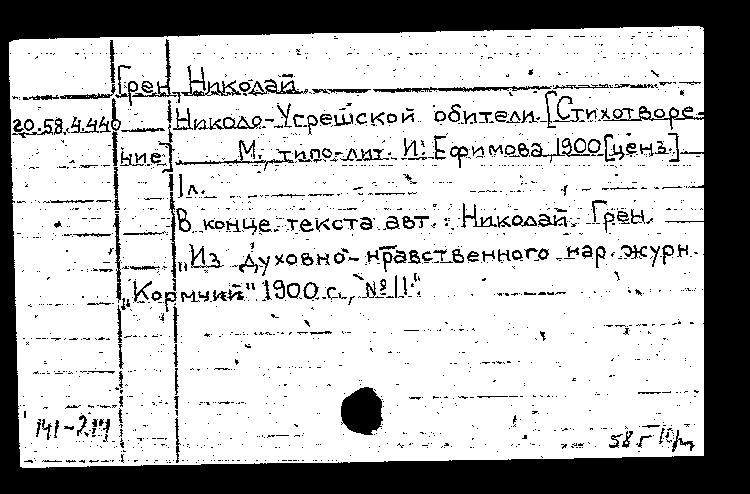 Грен, Николай
20.58.4.440 Николо-Угрешской обители. [Стихотворе-
ние]. М., типо-лит. И. Ефимова, 1900 [ценз.].
1л.
В конце текста авт.: Николай Грен.
„Из духовно-нравственного нар. журн.
„Кормчий" 1900 г., № 11."
141-214
58 г